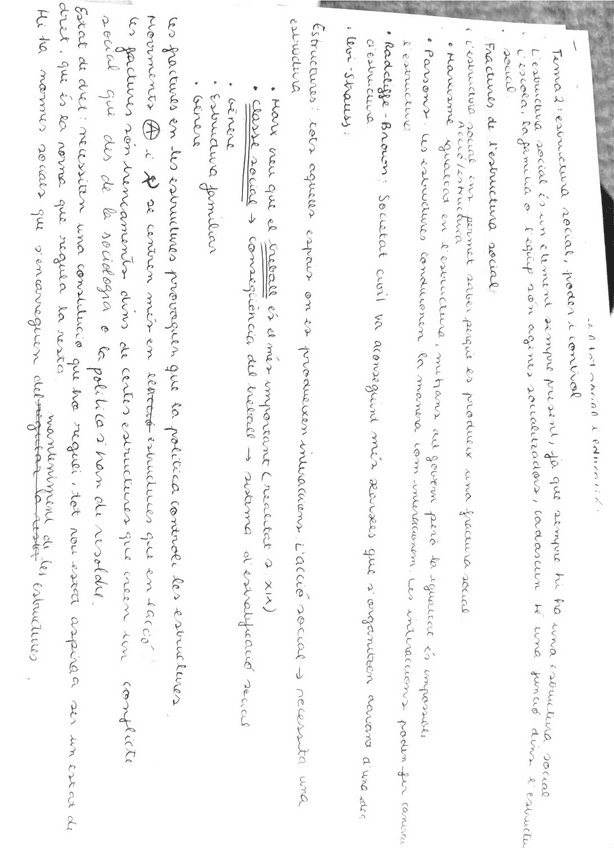 Tema 2: estructura social, poder i control
L'estructura social és un element sempre present, ja que sempre hi ha una estructura social
L'escola, la família o l'equip són agents socialitzadors, cadascun té una funció dins l'estructu
social
Fractures de l'estructura social
L'estructura social ens permet saber perquè es produeix una fractura social
Acció/estructura
• Marxisme igualtat en l'estructura, mitjans del govern però la igualtat és impossible
• Parsons: les estructures condicionen la manera com interaccionem. Les interaccions poden fer canviar
l'estructura
• Radcliffe-Brown: Societat civil va aconseguint més xarxes que s'organitzen davant d'una des
d'estructura
• Levi-Strauss:
Estructures: tots aquells espais on es produeixen interaccions. L'acció social → necessita una
estructura
• Marx veu que el treball és el més important (realitat s XIX)
• Classe social → conseqüència del treball → sistema d'estratificació social
• Gènere
• Estructura familiar
• Gènere
Les fractures en les estructures provoquen que la política controli les estructures.
Moviments Ⓐ i se centren més en estructures que en l'acció
Les fractures són trencaments dins de certes estructures que creen un conflicte
social que des de la sociologia o la política s'han de resoldre.
Estat de dret: necessiten una constitució que ho reguli, tot nou estat aspira a ser un estat de
dret, que és la norma que regula la resta
manteniment de les estructures.
Hi ha normes socials que s'encarreguen del regular la resta